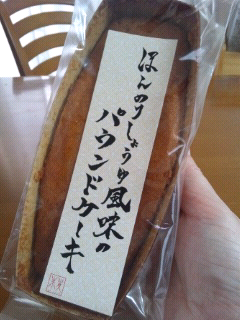 ほんのりしょうゆ風味の
パウンドケーキ